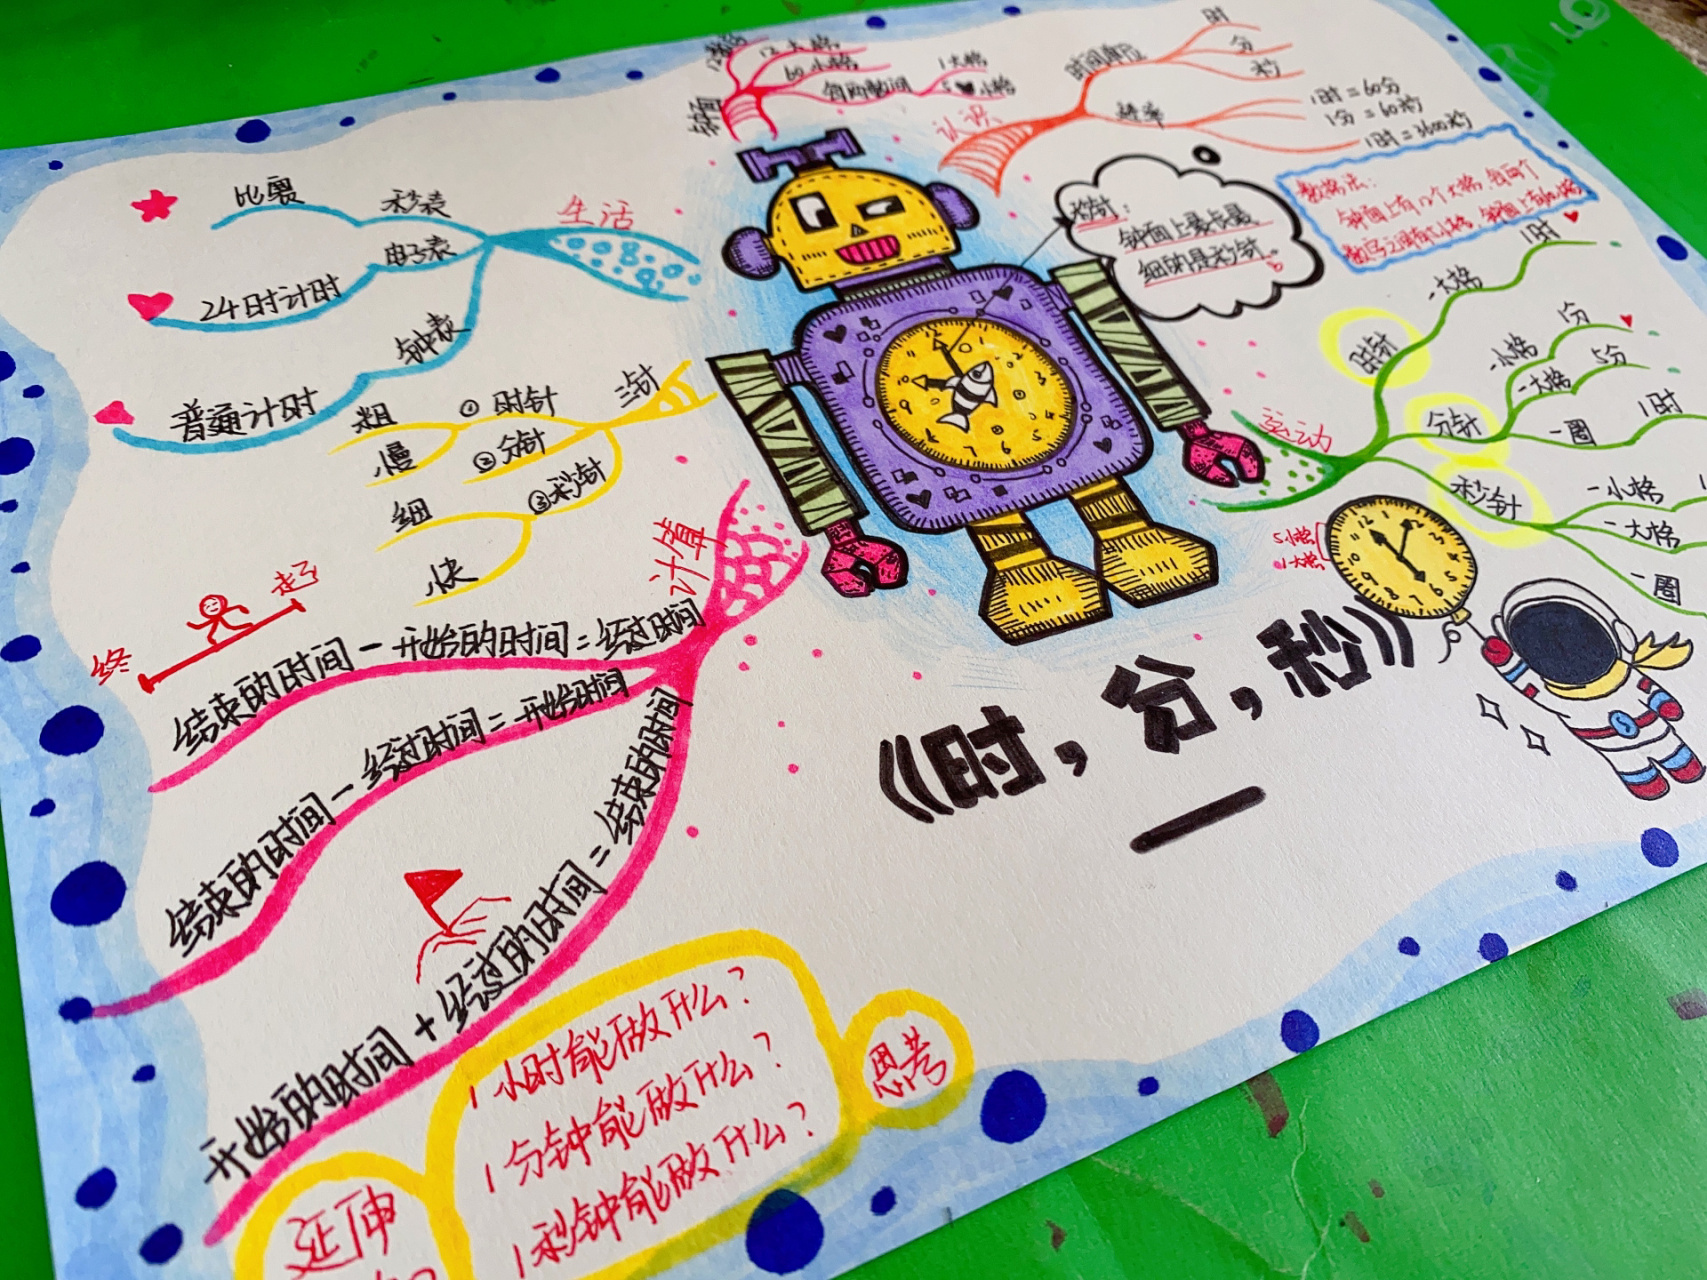 钟面
12大格
60小格
每两数间
1大格
5小格
认识
时间单位
时
分
秒
进率
1时=60分
1分=60秒
1时=3600秒
秒针：
钟面上最长最
细的是秒针。
数格法：
钟面上有12个大格，每两个
生活
秒表
比赛
电子表
24时计时
钟表
普通计时
三针
①时针
粗
慢
②分针
③秒针
细
快
运动
时针
一大格
1时
分针
一小格
1分
一大格
5分
一圈
1时
秒针
一小格
一大格
一圈
5小格
1大格
计算
起
终
结束的时间-开始的时间=经过时间
结束的时间-经过时间=开始时间
开始的时间+经过的时间=结束的时间
《时,分,秒》
思考
1小时能做什么?
1分钟能做什么?
1秒钟能做什么?
延伸